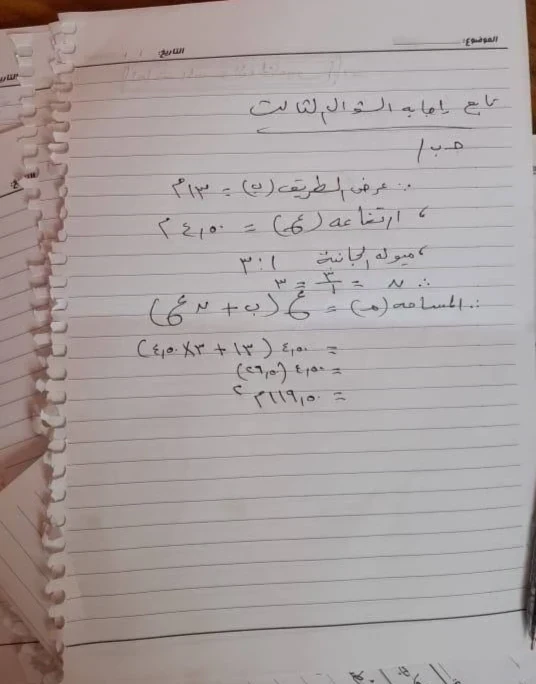 الموضوع:
التاريخ:
تابع إجابه السؤال الثالث
حـ ب /
∵ عرض الطريق (ب) = ١٣م
، ارتفاعه (ع) = ٤,٥٠ م
، ميوله الجانبية ١ : ٣
∴ ن = ٣/١ = ٣
∴ المساحه (م) = ع (ب + ن ع)
= ٤,٥٠ (١٣ + ٣ × ٤,٥٠)
= ٤,٥٠ (٢٦,٥)
= ١١٩,٥٠م٢